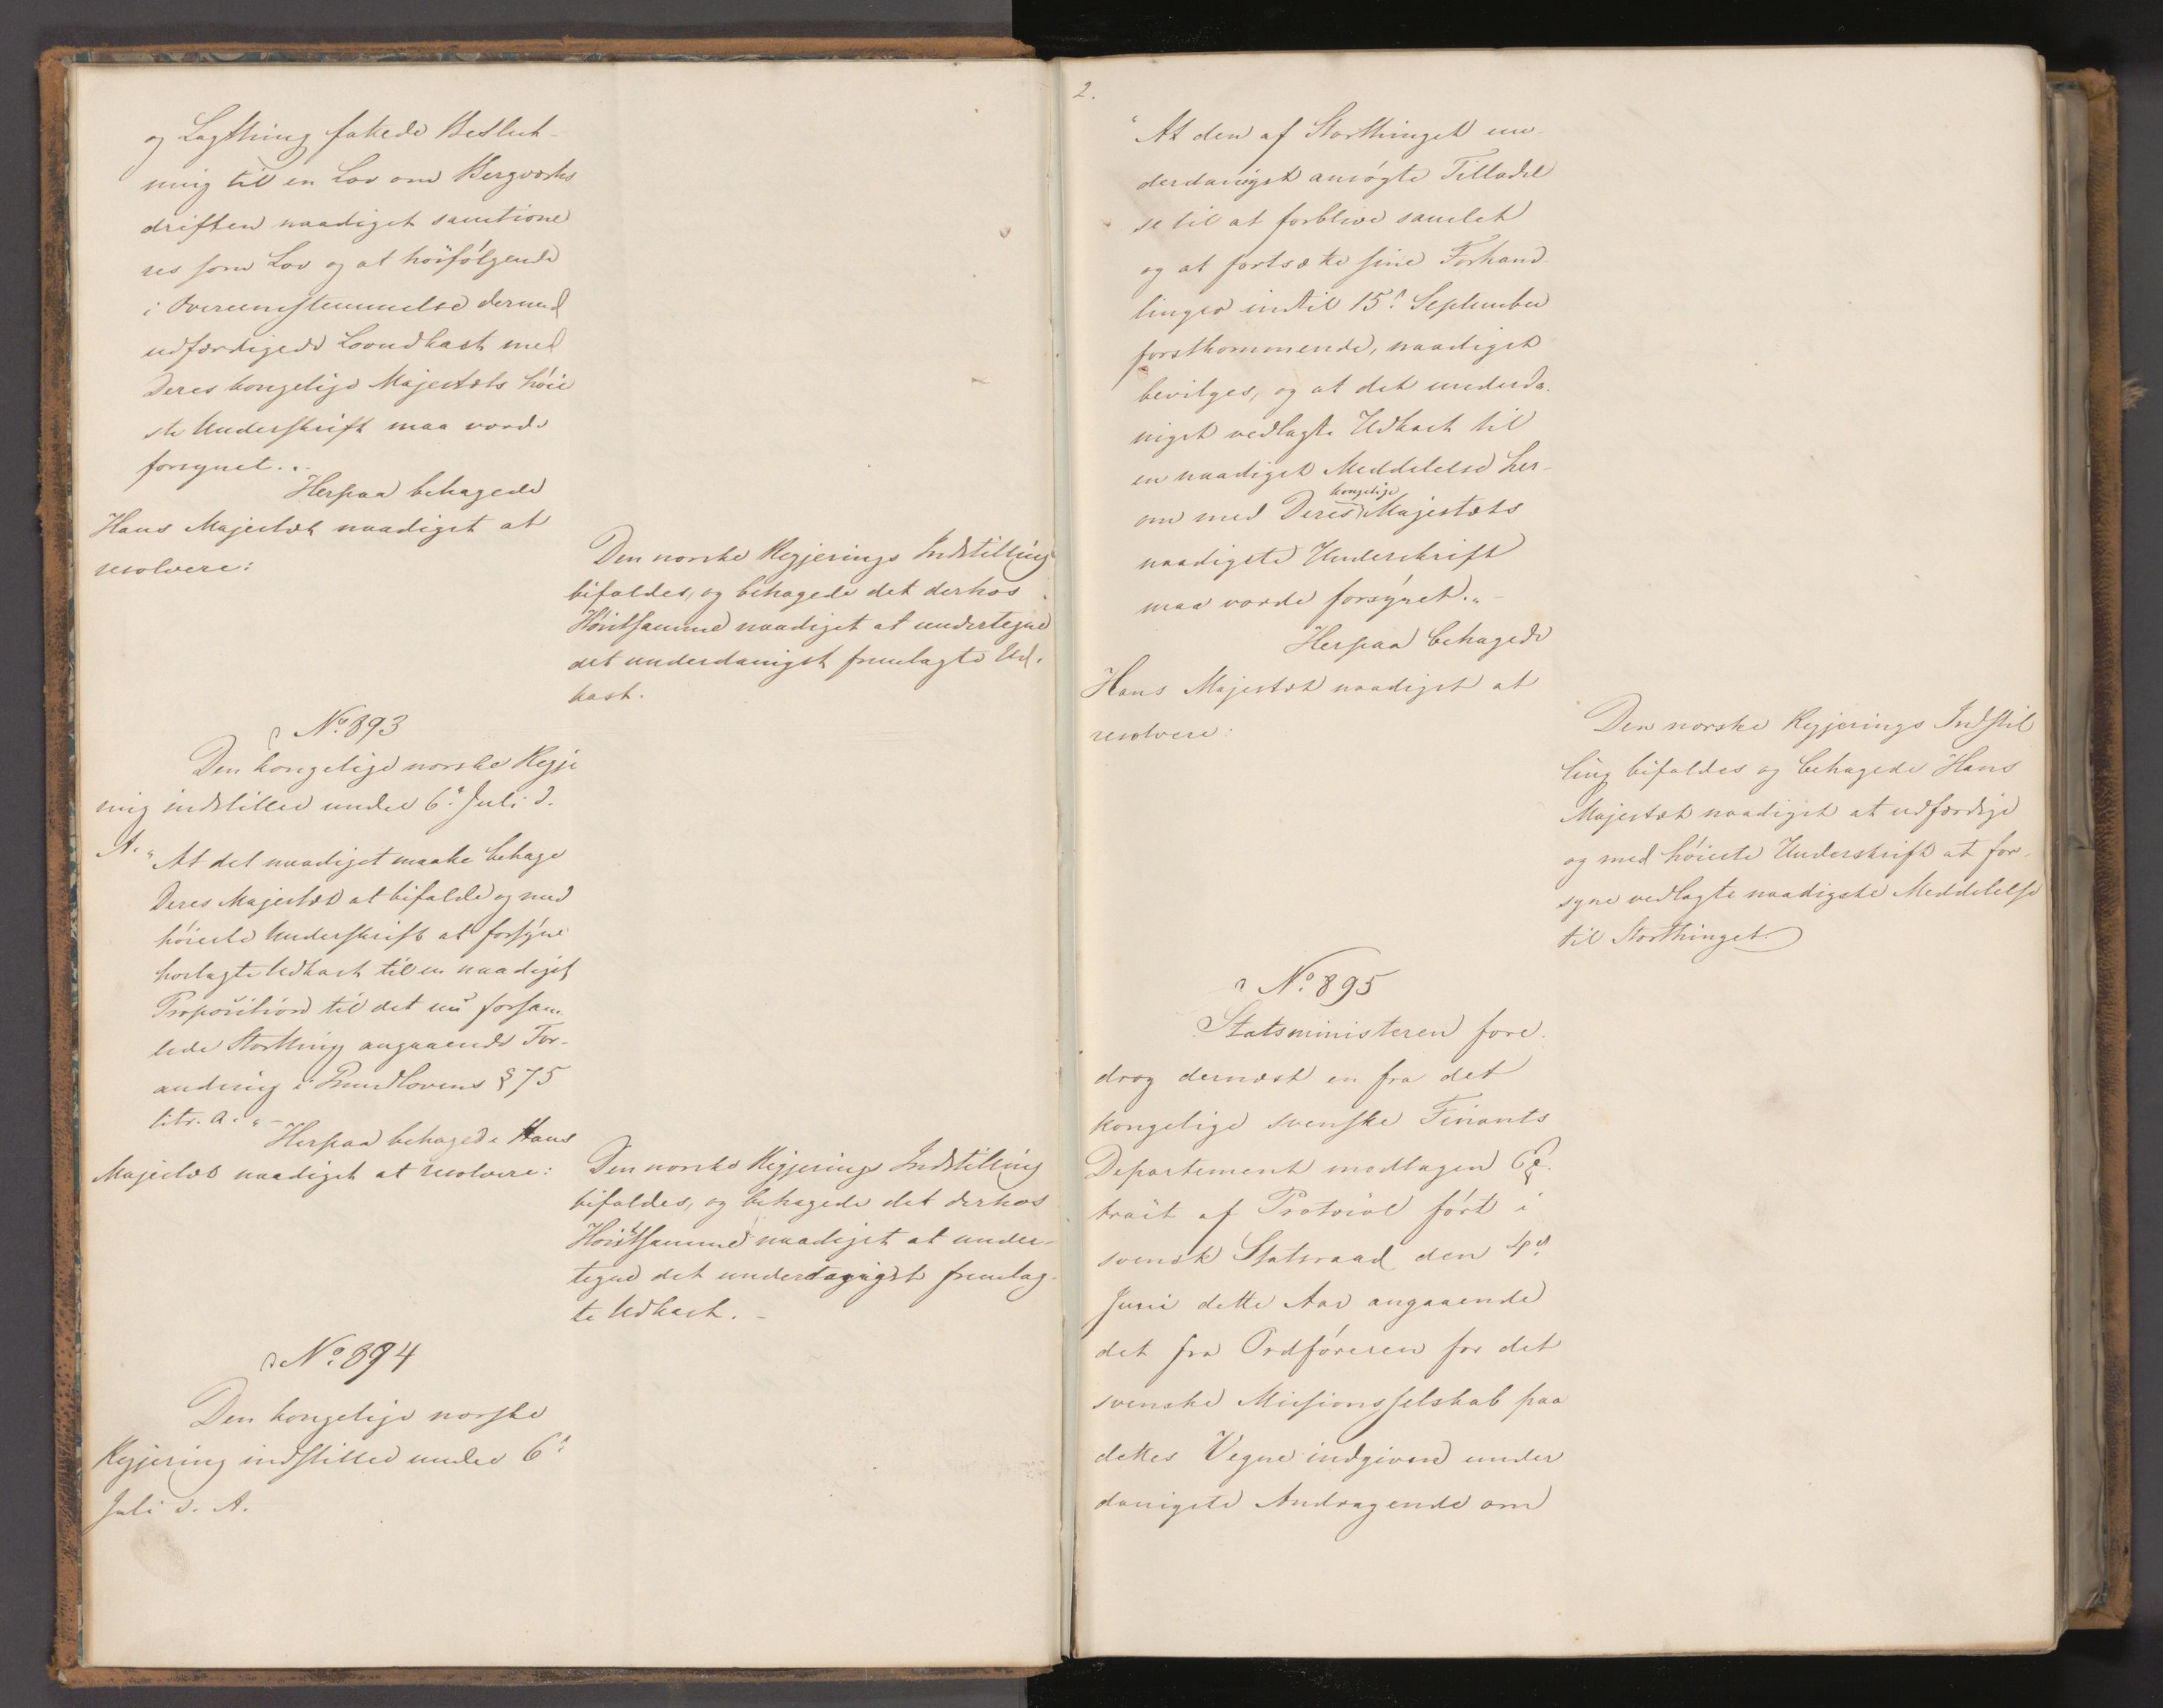 og Lagthing fattede Beslut-
ning til en Lov om Bergværks
driften naadigst sanctione
res som Lov og at hosfølgende
i Overeensstemmelse dermed
udfærdigede Lovudkast med
Deres kongelige Majestæts höie
ste Underskrift maa vorde
forsynet."
Herpaa behagede
Hans Majestæt naadigst at
resolvere:
Den norske Regjerings Indstilling
bifaldes, og behagede det derhos
Höistsamme naadigst at undertegne
det underdanigst fremlagte Ud-
kast.
No. 893
Den kongelige norske Regje
ring indstiller under 6te Juli d.
A. "At det naadigst maatte behage
Deres Majestæt at bifalde og med
höieste Underskrift at forsÿne
hoslagte Udkast til en naadigst
Proposition til det nu forsam
lede Storthing angaaende For-
andring i Grundlovens § 75
litr. a." -
Herpaa behagede Hans
Majestæt naadigst at resolvere:
Den norske Regjerings Indstilling
bifaldes, og behagede det derhos
Höistsamme naadigst at under-
tegne det underdanigst fremlag-
te Udkast. -
No. 894
Den kongelige norske
Regjering indstiller under 6te
Juli d. A.
2.
"At den af Storthinget un-
derdanigst ansögte Tilladel
se til at forblive samlet
og at fortsætte sine Forhand
linger indtil 15de September
forstkommende, naadigst
bevilges, og at det underda-
nigst vedlagte Udkast til
en naadigst Meddelelse her-
om med Deres kongelige Majestæts
naadigste Underskrift
maa vorde forsÿnet." -
Herpaa behagede
Hans Majestæt naadigst at
resolvere:
Den norske Regjerings Indstil
ling bifaldes og behagede Hans
Majestæt naadigst at udfærdige
og med höieste Underskrift at for-
syne vedlagte naadigste Meddelelse
til Storthinget.
No. 895
Statsministeren fore-
drog dernæst en fra det
kongelige svenske Finants
Departement modtagen Ex-
trait af Protocol fört i
svensk Statsraad den 4de
Juni dette Aar angaaende
det fra Ordföreren for det
svenske Missionsselskab paa
dettes Vegne indgivne under
danigste Andragende om